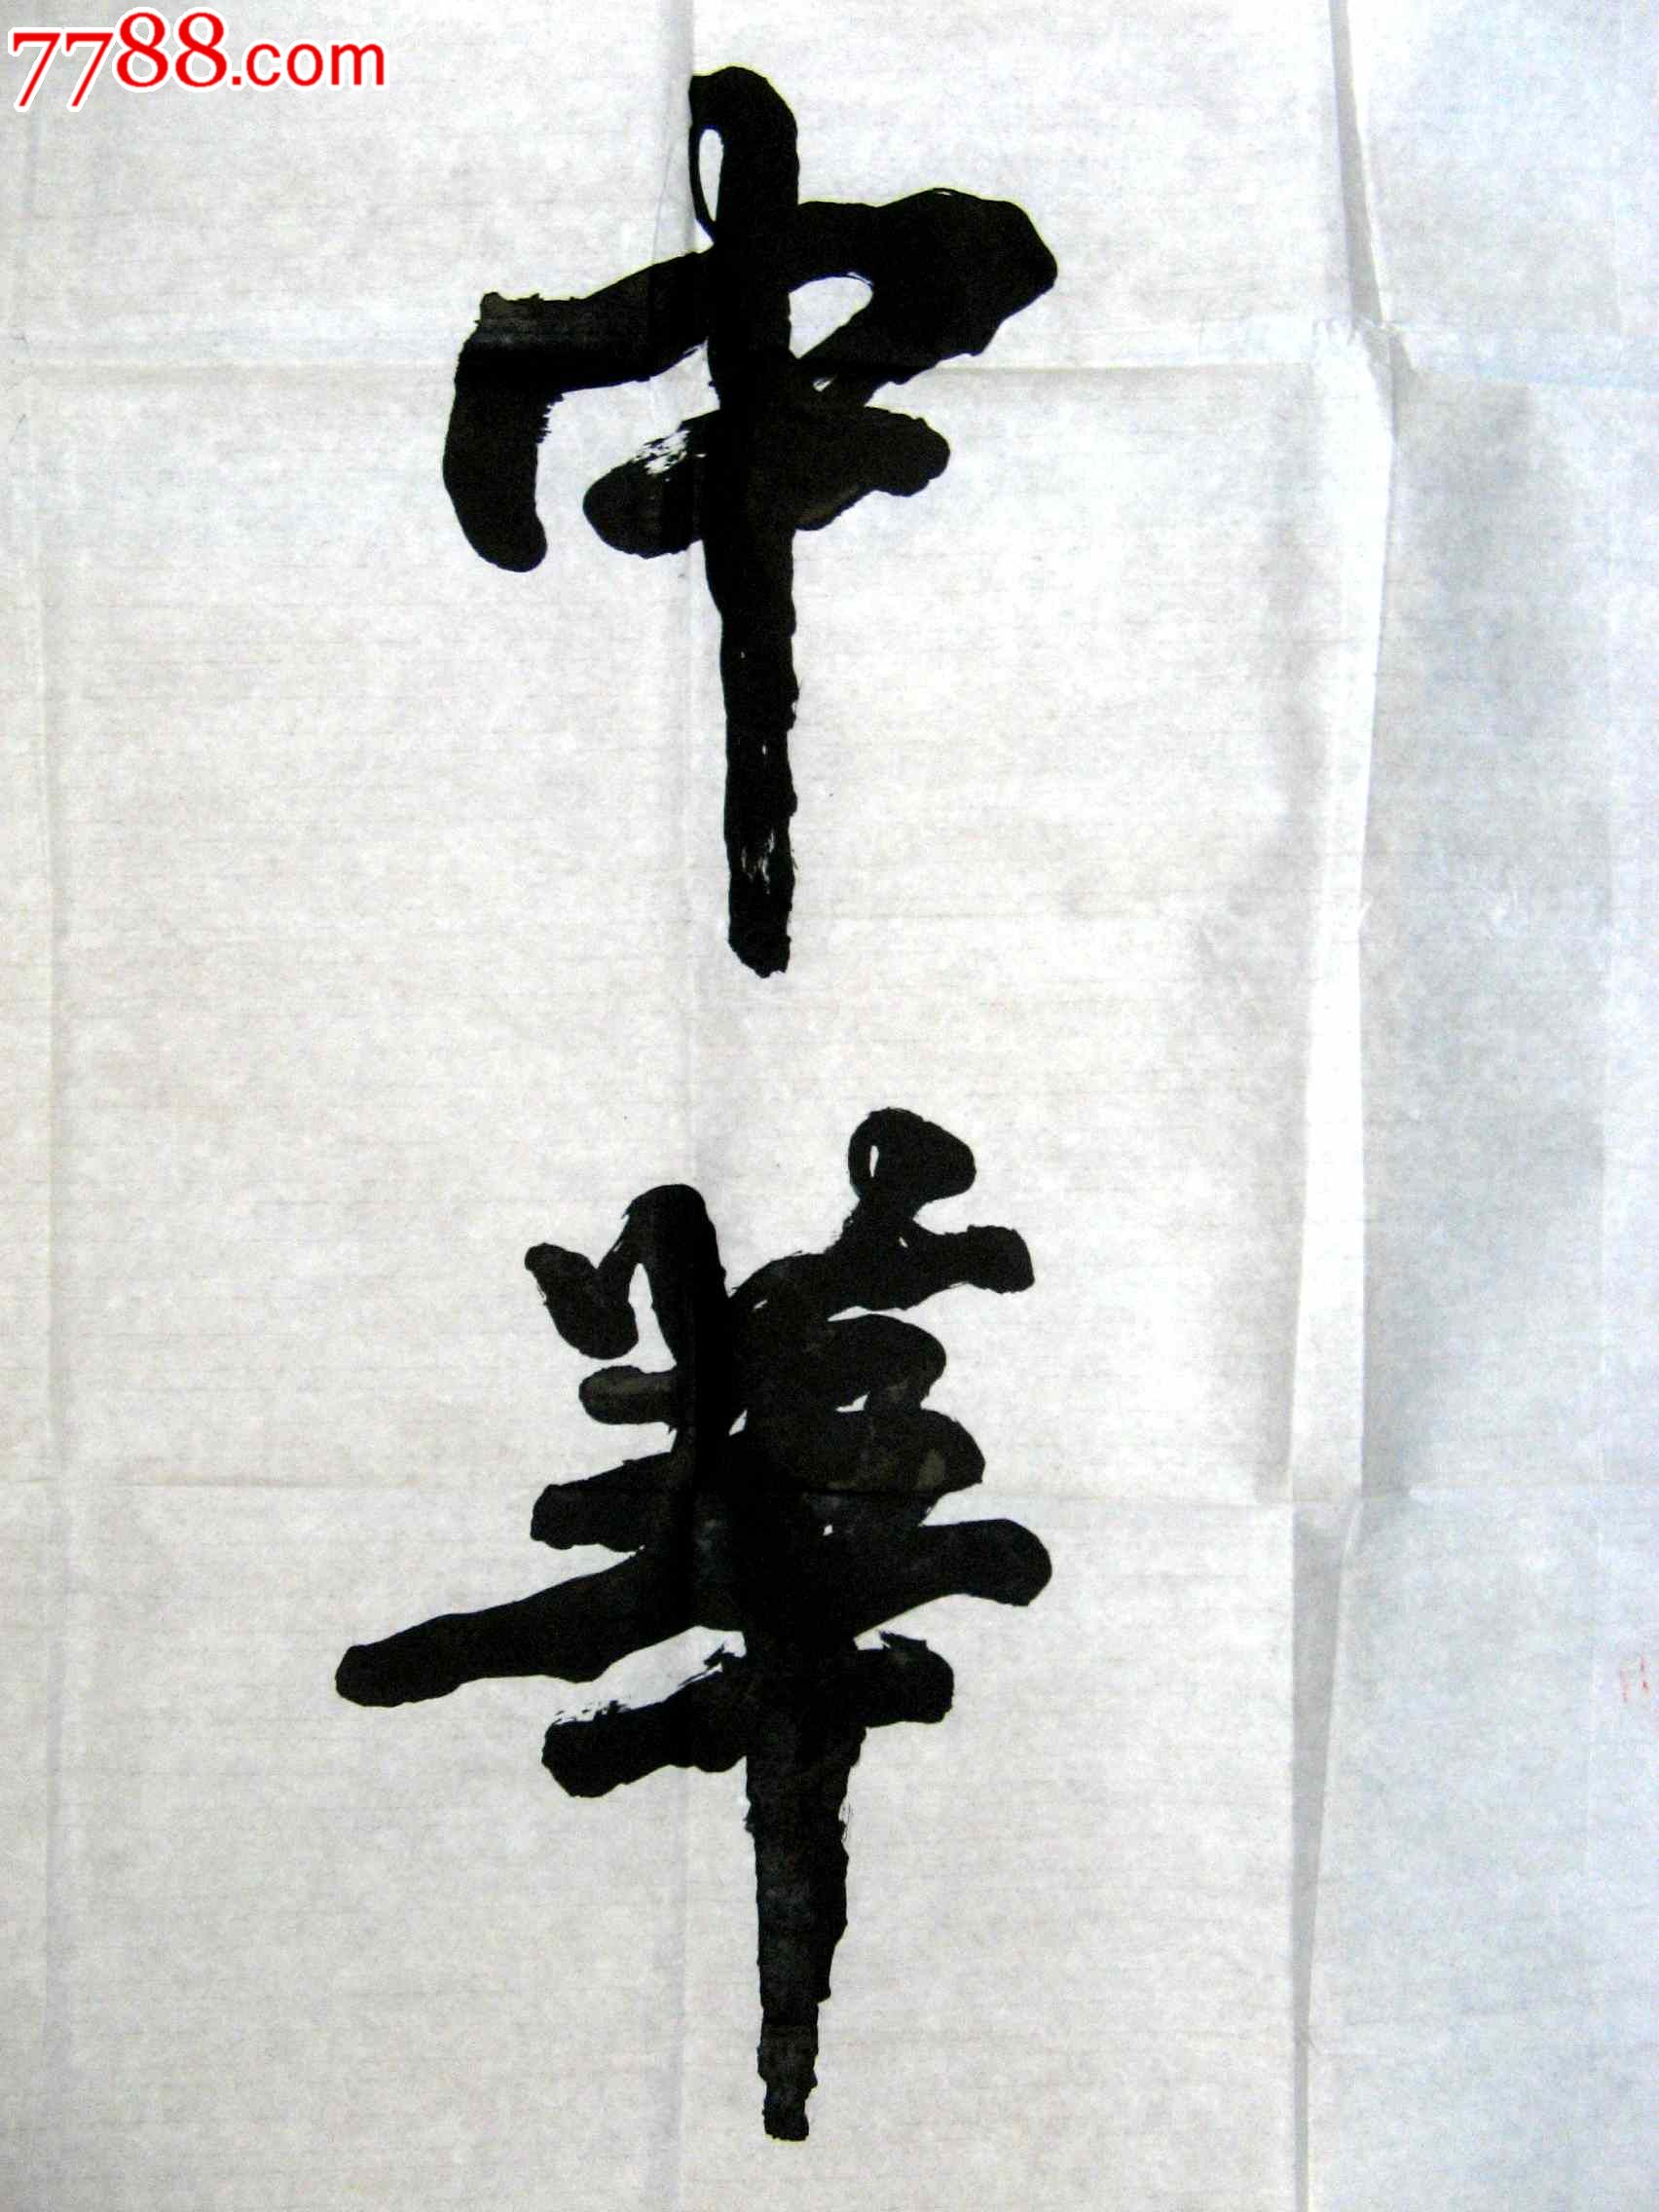 7788.com
中
華